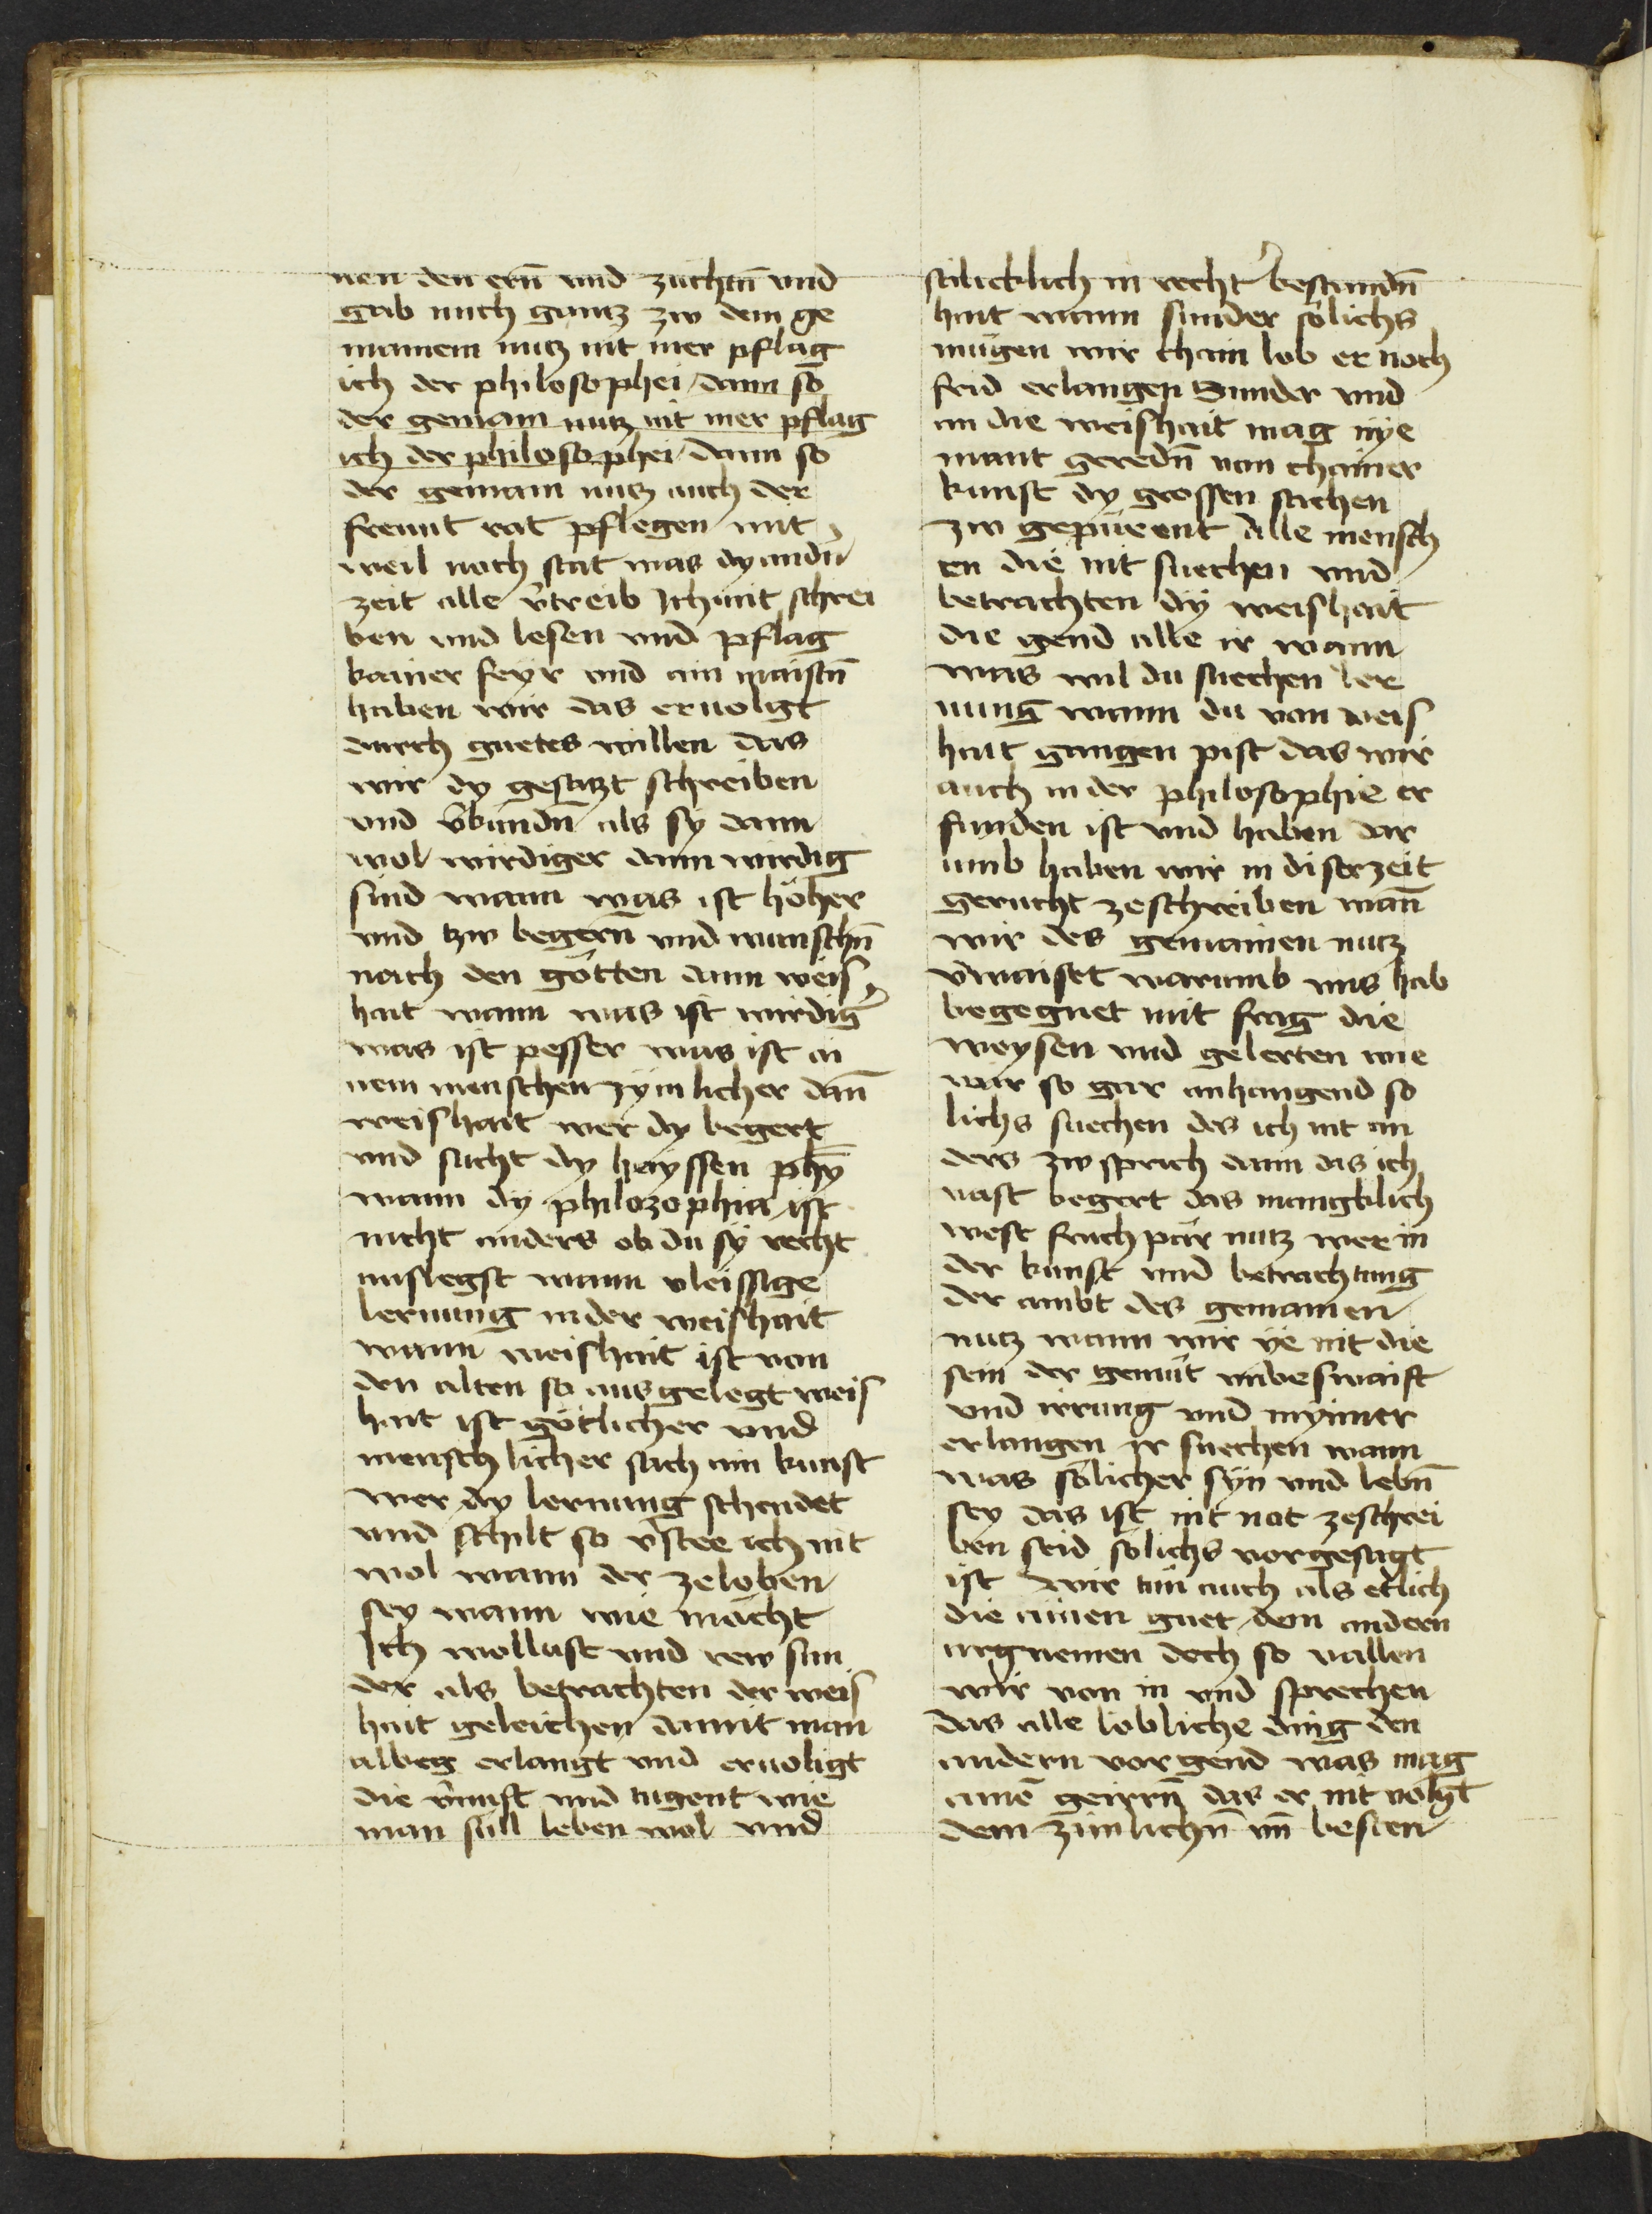 nen den ern̄ vnd zuchtn̄ vnd
gab mich gantz zw dem ge
mainem nutz nit mer pflag
ich der philosophei dann so
der gemain nutz nit mer pflag
ich der philosophei dann so
der gemain nutz auch der
freunt rat pflegen mit
weil noch stat was dy andn̄
zeit alle v̄treib Ich mit schrei
ben vnd lesen vnd pflag
kainer feyr vnd am maistn̄
haben wir das eruolgt
durch guetes willen das
wir dy gesatzt schreiben
vnd v̄kundn̄ als sy dann
wol wirdiger dann wirdig
sind wann was ist höher
vnd tzw begern̄ vnd wunschn̄
nach den götten dann weis
hait wann was ist wirdiḡ
was ist pesser was ist ai
nem menschen zymlicher dan̄
weishait wer dy begert
vnd sucht dy hayssen phȳ
wann dy philozophia ist
nicht anders ob du sy recht
auslegst wann vleissige
lernung in der weishait
wann weishait ist von
den alten so ausgelegt weis
hait ist götlicher vnd
menschlicher sach ain kunst
wer dy lernung schendet
vnd schilt so v̄stee ich nit
wol wann der zeloben
sey wann wie macht
Ich wollust vnd rew sun
der als betrachten der weis
hait geleichen damit man
albeg erlangt vnd eruolgt
die v̄nuft vnd tugent wie
man sull leben wol vnd
stälicklich in recht̄ bestandn̄
hait wann sunder sölichs
mügen wir chain lob er noch
frid erlangen Sunder vnd
an die weishait mag nye
mant geredn̄ von chainer
kunst dy grossen sachen
zw gepürent Alle mensch
en die nit suechen vnd
betrachten dy weishait
die gend alle ir wann
was wil du suechen ler
nung wann du von weis
hait gangen pist das wir
auch in der philosophie er
funden ist vnd haben dar
umb haben wir in diser zeit
gerucht zeschreiben wan̄
wir des gemainen nutz
v̄waiset warumb vns hab
begegnet mit frag die
weysen vnd gelerten wie
wir so gar anhangend so
lichs suechen des ich nit an
ders zw sprich dann das ich
vast begert das mangklich
west fruchpär nutz wer in
der kunst vnd betrachtung
der ambt des gemainen
nutz wann wir ye nit die
sein der gemüt vmbeswaift
vnd irrung vnd nymer
erlangen ir suechen wann
was sölicher syn vnd lebn̄
sey das ist nit not zeschrei
ben seid sölichs vorgesagt
ist Wir tün auch als etlich
die ainen guet dem andern
arg nemen doch so vallen
wir von in vnd sprechen
das alle lobliche ding den
andern vorgend was mag
ainē geirrn̄ das er nit volgt
dem zimlichn̄ vn̄ besten